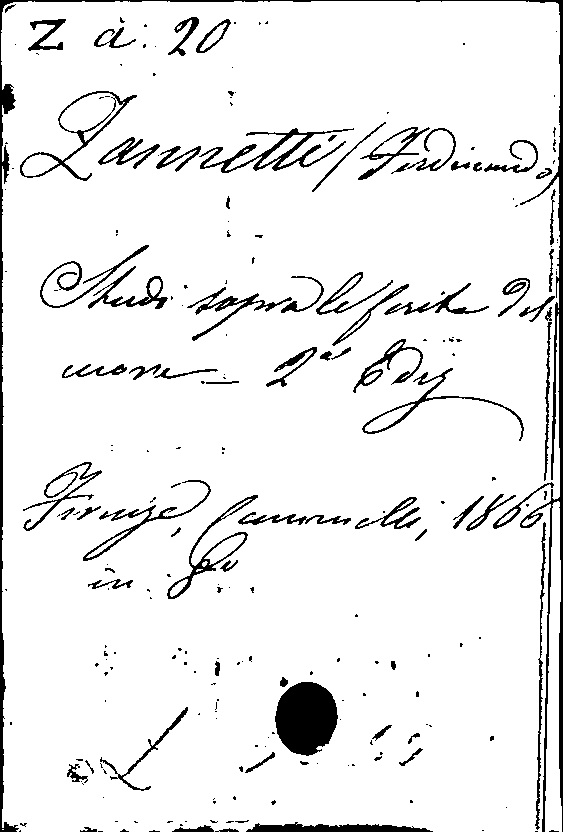 Z a. 20
Zannetti (Ferdinando)
Studi sopra le ferite del
cuore - 2ª Ediz
Firenze, Cammelli, 1866
in 8º